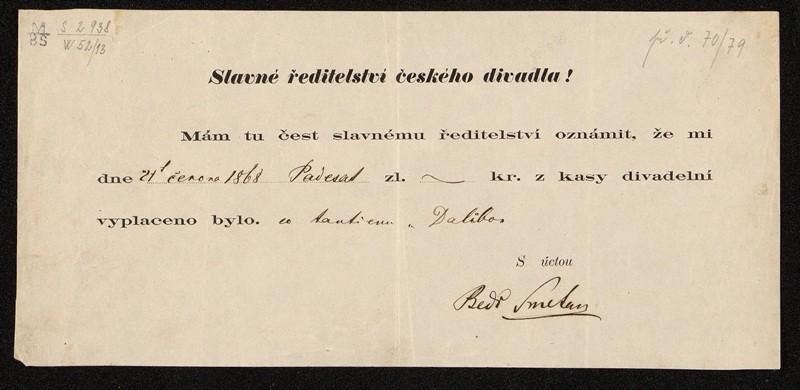 M S 2 938
BS W 52/13
př. č. 70/79
Slavné ředitelství českého divadla!
Mám tu čest slavnému ředitelství oznámit, že mi
dne 21 června 1868 Padesat zl. — kr. z kasy divadelní
vyplaceno bylo. co tantiemu „Dalibor
S úctou
Bedř Smetana